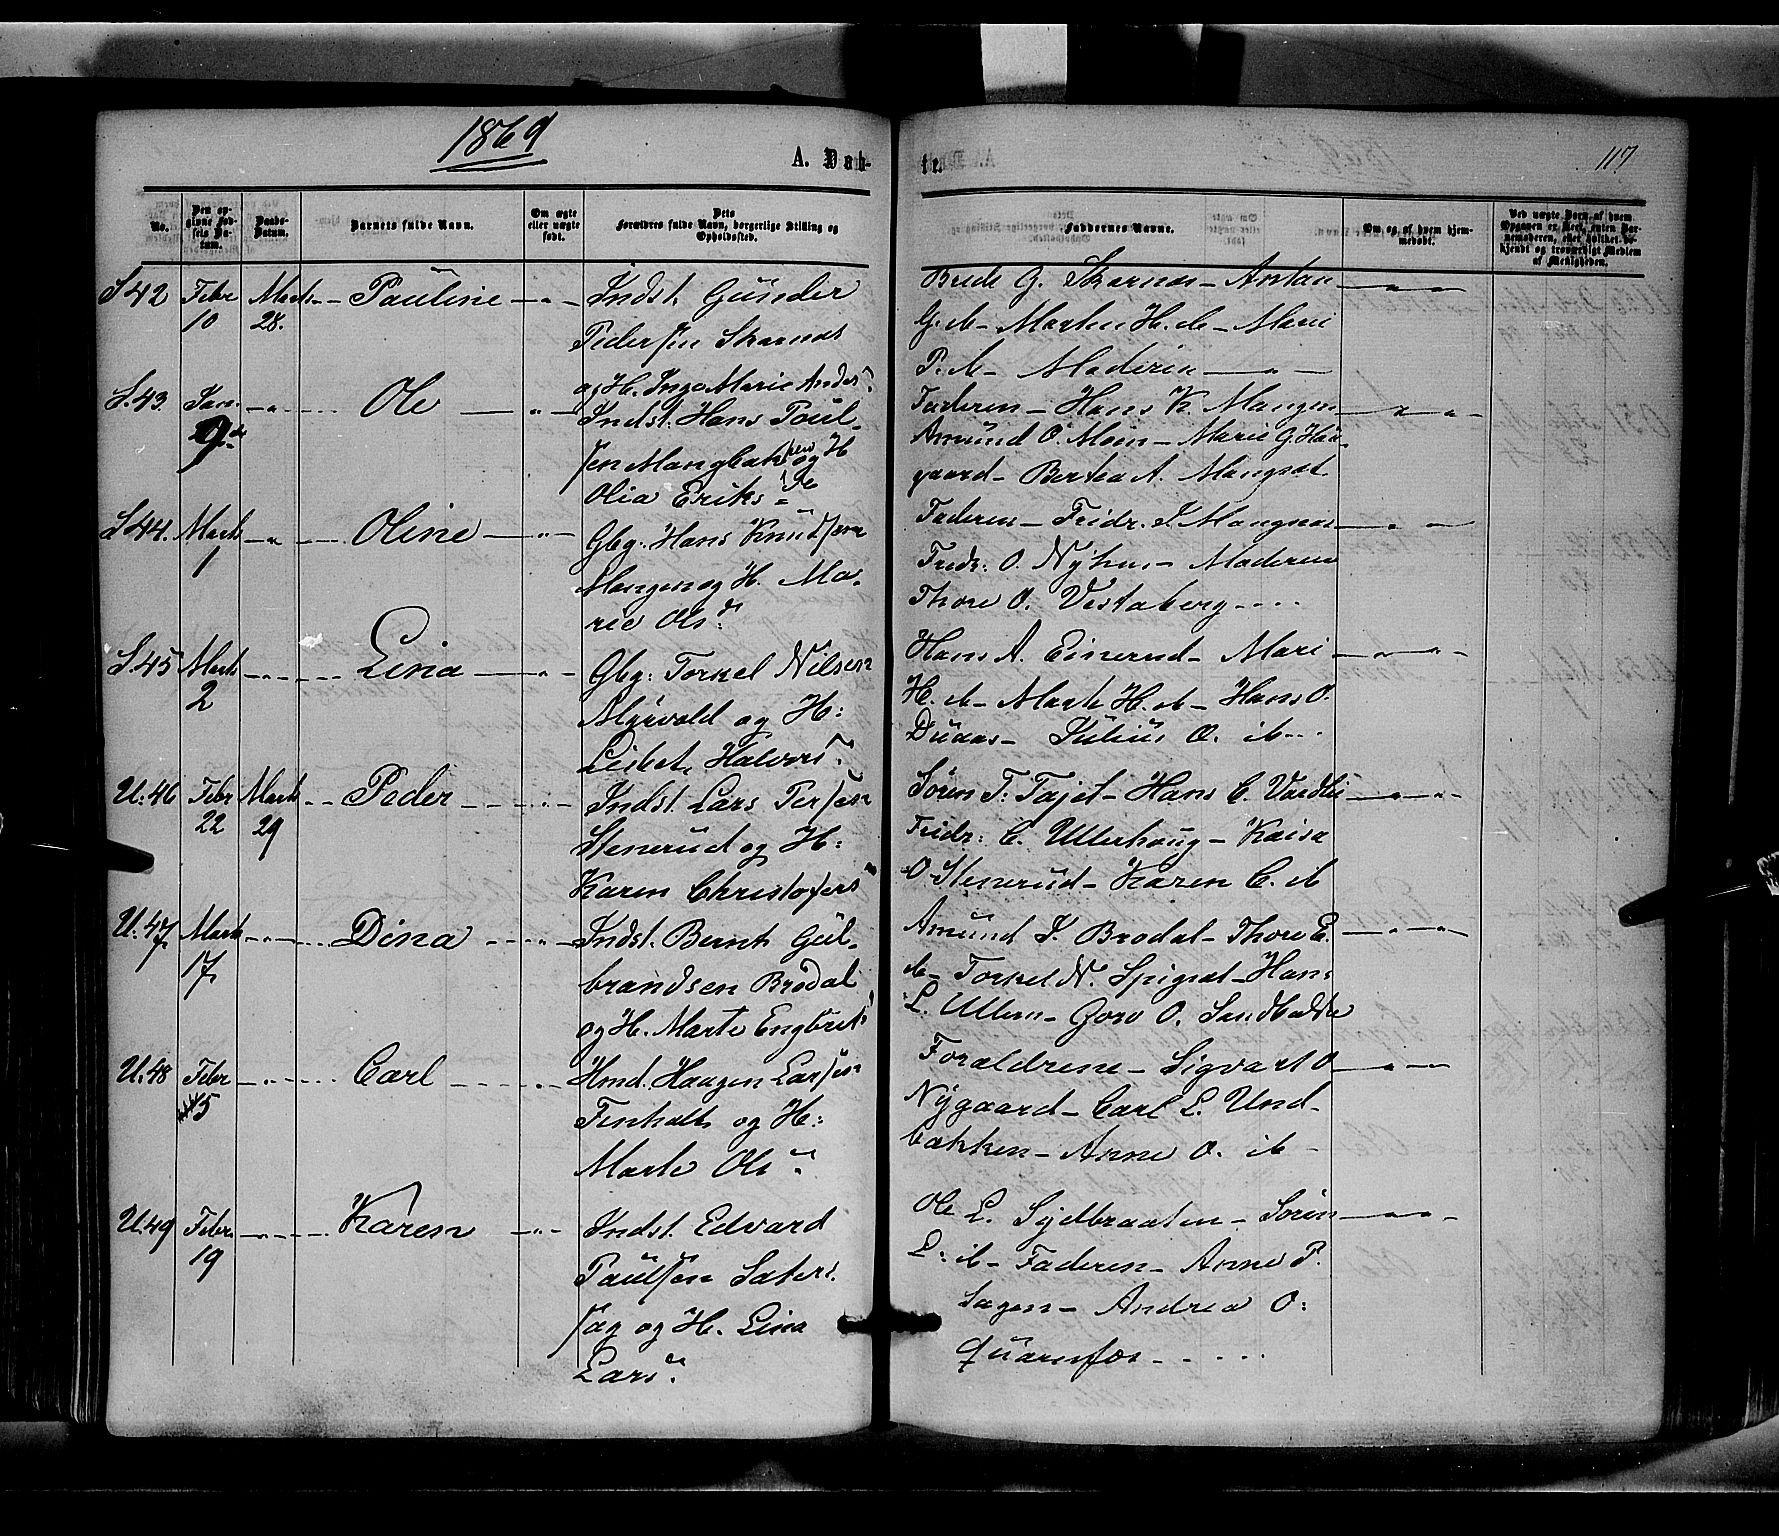 1869
A. Døb-
te.
117
No.
Den opgivne Fødsels Datum.
Daabs-Datum.
Barnets fulde Navn.
Om ægte eller uægte født.
Dets Forældres fulde Navn, borgerlige Stilling og Opholdssted.
Faddernes Navne.
Om og af hvem hjemmedøbt.
Ved uægte Børn, af hvem Opgaven er skeet, enten Barnemoderen, eller hvilket bekjendt og troværdigt Medlem af Menigheden.
S 42 Febr 10 Marts 28. Pauline Indst. Gunder
Pedersen Skarnæs
og H. Inga Marie Anders
G. ib - Marthe H. ib - Marie
P. ib - Moderen
S. 43. Jan. Ole Indst. Hans Poul-
sen og H
Olia Eriks de
Faderen - Hans K. Mangen
Amund O. Moen - Marie G. Haa-
gaard - Bertea A. Mangset
S 44. Marts 1 Oline Gbg. Hans Knudsen
Mangen og H. Ma-
rie Ols d.
Faderen - Fridr. J. Mangnæs
Fredr: O. Nyhus - Moderen
Thore O. Vestaberg
S. 45 Marts 2 Lina Gbg: Torkel Nilsen
og H:
Lisbet Halvors d.
Hans A. Einerud - Mari
H. ib - Marte H. ib - Hans O.
Julius O. ib
U: 46 Febr 22 Marts 29 Peder Indst. Lars Persen
Stenerud og H:
Karen Christofers
Søren T: Tajet - Hans C.
Fridr: C. Ullerhaug - Kaisa
O. Stenerud - Karen C. ib
U: 47 Marts 17 Dina Indst. Bernt Gul-
brandsen Brødal
og H. Marte Engbrets
Amund J. Brødal - Thore E.
ib - Torkel N. Spigset - Hans
L. Ullern - Goro O.
U: 48 Febr 5 Carl Hmd. Haagen Larsen
Finholt og H:
Marte Ols d.
Forældrene - Sigvart O
Nygaard - Carl L. Und-
bakken - Anne O. ib -
U. 49 Febr. 19 Karen Indst. Edvard
Paulsen Sæters
og H. Lina
Lars d.
Ole L. Sydbraaten - Søren
L: ib - Faderen - Anne P.
Sagen - Andrea O:
Quarnfos